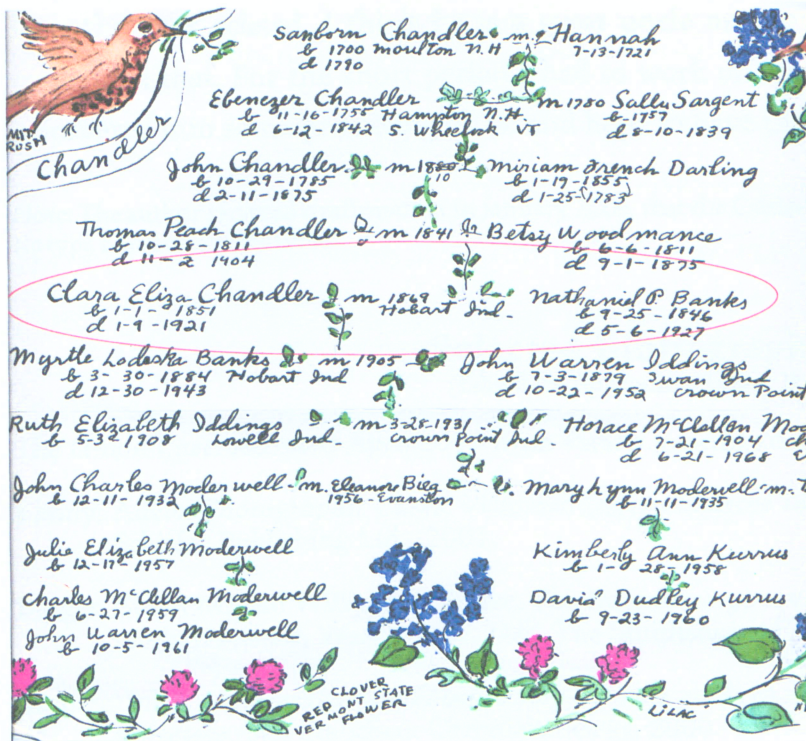 Sanborn Chandler m. Hannah
b 1700 Moulton N.H 7-13-1721
d 1790
Ebenezer Chandler m 1780 Sally Sargent
b 11-16-1755 Hampton N.H. b-1757
d 6-12-1842 S. Wheelock VT d 8-10-1839
HERMIT THRUSH
Chandler
John Chandler m 1880 Miriam French Darling
10
b 10-29-1785 b 1-19-1855
d 2-11-1875 d 1-25-1783
Thomas Peach Chandler m 1841 Betsy Woodmance
b 10-28-1811 b 6-6-1811
d 11-2 1904 d 9-1-1875
Clara Eliza Chandler m 1869 Nathaniel P. Banks
b 1-1-1851 Hobart Ind. b 9-25-1846
d 1-9-1921 d 5-6-1927
Myrtle Lodeska Banks m 1905 John Warren Iddings
b 3-30-1884 Hobart Ind b 7-3-1879 Swan Ind
d 12-30-1943 d 10-22-1952 Crown Point
Ruth Elizabeth Iddings m 3-28-1931 Horace McClellan Mod
b 5-3-1908 Lowell Ind. Crown Point Ind. b 7-21-1904 Ch
d 6-21-1968 E
John Charles Moderwell m. Eleanore Bieg Mary Lynn Moderwell m.
b 12-11-1932 1956-Evanston b 11-11-1935
Julie Elizabeth Moderwell Kimberly Ann Kurrus
b 12-17-1957 b 1-28-1958
Charles McClellan Moderwell David Dudley Kurrus
b 6-27-1959 b 9-23-1960
John Warren Moderwell
b 10-5-1961
RED CLOVER
VERMONT STATE
FLOWER
LILAC